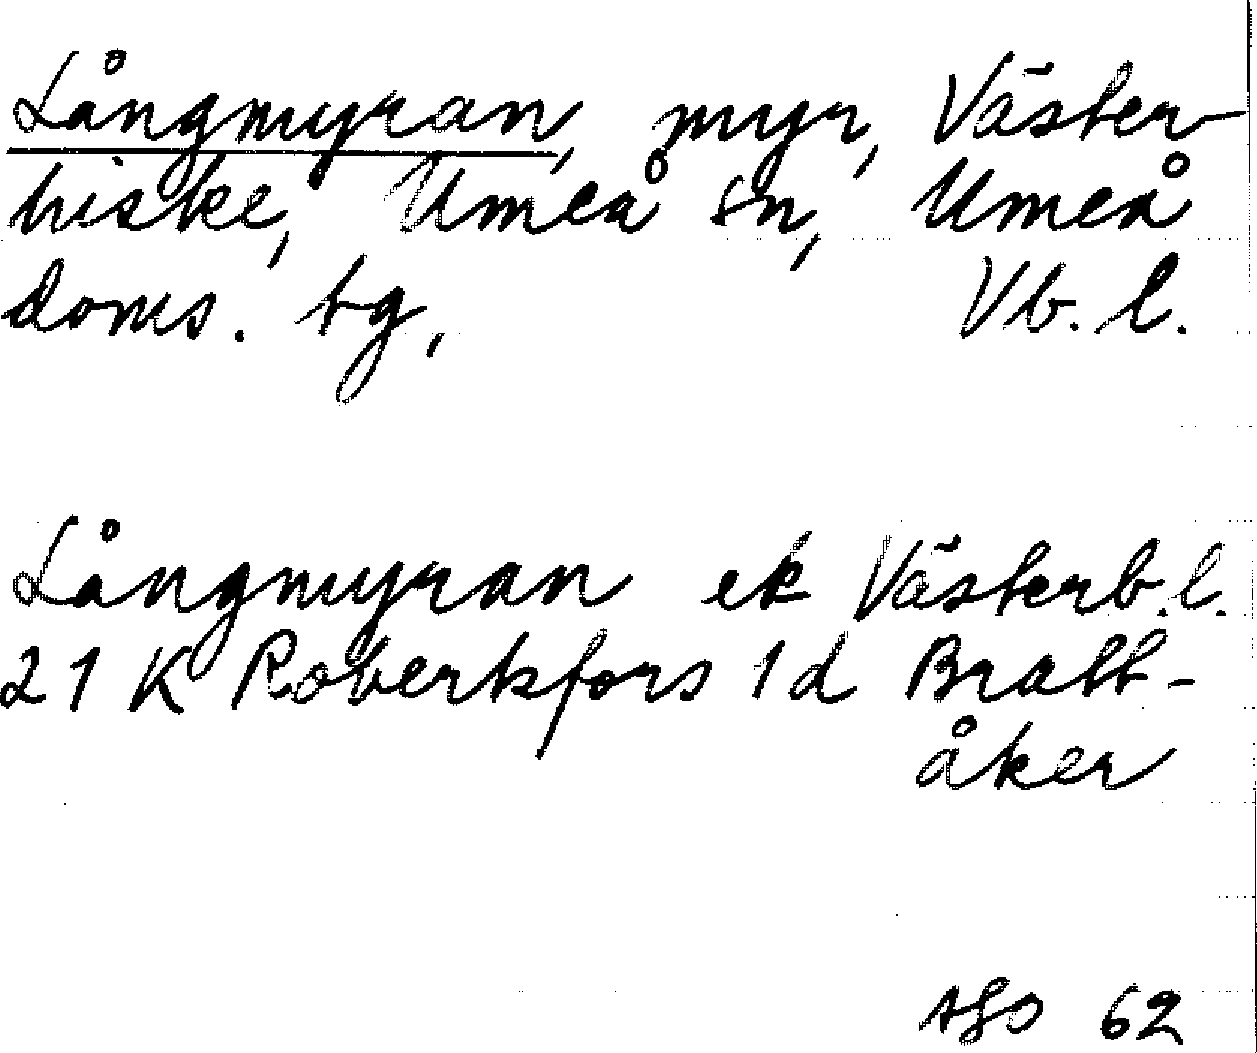 Långmyran, myr, Väster-
hiske, Umeå sn, Umeå
doms. tg, Vb. l.
Långmyran ek Västerb. l.
21 K Robertsfors 1d Bratt-
åker
62